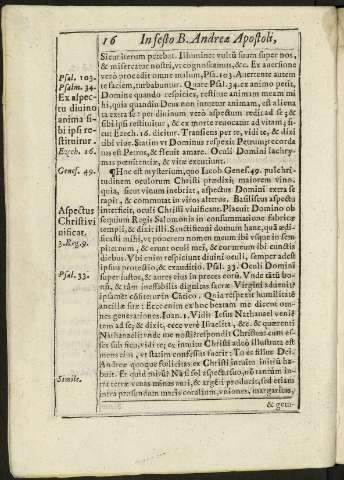 16 In festo B. Andreæ Apostoli,
Sicut iterum petebat. Illuminet vultū suum super nos,
& misereatur nostri, vt cognoscamus, &c. Ex auersione
Psal. 103.
verò procedit omne malum, Psa. 103. Auertente autem
Psalm. 34.
te faciem, turbabuntur. Quare Psal. 34. ex animo petit,
Ex aspec-
Domine quando respicies, restitue animam meam
tu diuino
quia quandiu Deus non intuetur animam, est aliena
anima si-
ta extra se: per diuinum verò aspectum redit ad se; &
bi ipsi re-
sibi ipsi restituitur, & ex morte reuocatur ad vitam; si-
stituitur.
cut Ezech. 16. dicitur. Transiens per te, vidi te, & dixi
Ezech. 16.
tibi viue. Statim vt Dominus respexit Petrum recorda
tus est Petrus, & fleuit amarè. Oculi Domini lachry-
mas pœnitentiæ, & vitæ exciuunt.
Genes. 49.
¶Hoc est mysterium, quo Iacob Genes. 49. pulchri-
tudinem oculorum Christi prædixit maiorem vino,
quia, sicut vinum inebriat, aspectus Domini extra se
Aspectus
rapit, & commutat in viros alteros. Basiliscus aspectu
Christi vi
interficit, oculi Christi viuificant. Placuit Domino ob
uificat.
sequium Regis Salomonis in consummatione fabricæ
3. Reg. 9.
templi, & dixit illi. Sanctificaui domum hanc, quā ædi-
ficasti mihi, vt ponerem nomen meum ibi vsque in sem-
piternum, & erunt oculi mei, & cor meum ibi cunctis
diebus. Vbi enim respiciunt diuini oculi, semper adest
Psal. 33.
ipsius protectio, & exauditio. Psal. 33. Oculi Domini
super iustos, & aures eius in preces eorū. Vnde tātū bo-
nū, & tām ineffabilis dignitas sacræ Virgini
ipsamet cōfitetur in Cātico. Quia respexit humilitatē
ancillæ suæ: Ecce enim ex hoc beatam me dicent om-
nes generationes. Ioan. 1. Vidit Iesus Nathanael venië
tem ad se; & dixit, ecce verè Israelita, &c. & quærenti
Nathanaeli: vnde me nosti? respondit Christus: cum es-
ses sub ficu, vidi te; ex intuitu Christi adeò illustrata est
mens eius, vt statim confessus fuerit: Tu es filius Dei.
Andreæ quoque fœlicitas ex Christi intuitu initiū ha-
buit. Et quid mirū? Nā si sol aspectu suo, nō tantùm in-
Simile.
tra terræ venas minas auri, & argēti producit, sed etiam
intra profundum maris corallium, vniones, margaritas,
& gem-